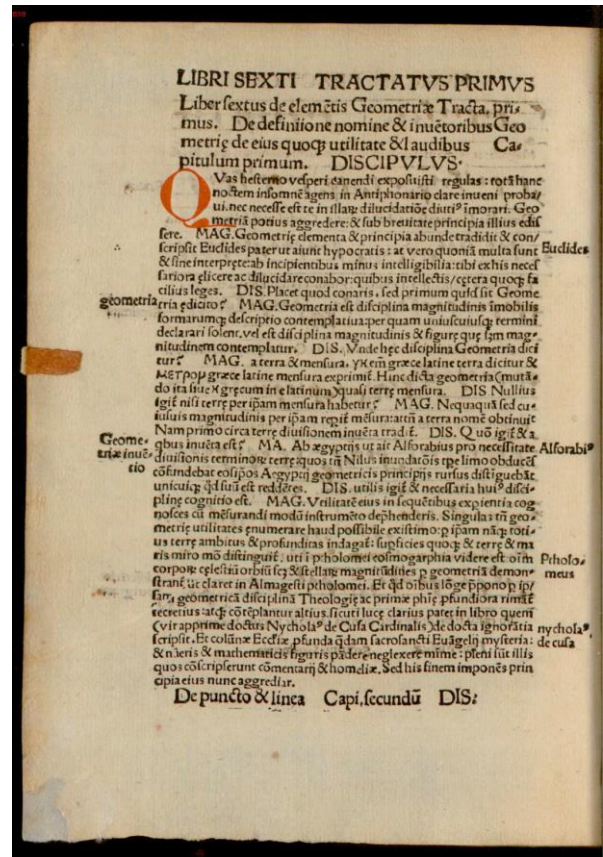 LIBRI SEXTI TRACTATVS PRIMVS
Liber sextus de elemẽtis Geometriæ Tracta. pri⸗
mus. De definiione nomine & inuẽtoribus Geo
metrię de eius quoqꝫ utilitate & laudibus Ca⸗
pitulum primum. DISCIPVLVS.
QVas hesterno vesperi canendi exposuisti regulas: totã hanc
noctem insomnẽ agens in Antiphonario clare inueni proba/
ui. nec necesse est te in illaꝝ dilucidatiõe diutiꝰ ĩmorari. Geo
metriã potius aggredere: & sub breuitate principia illius edis
sere. MAG. Geometrię elementa & principia abunde tradidit & con/
scripsit Euclides pater ut aiunt hypocratis: at vero quoniã multa sunt
Euclides
& sine interprete: ab incipientibus minus intelligibilia: tibi ex his neces
sariora elicere ac dilucidare conabor: quibus intellectis/cętera quoqꝫ fa
cilius leges. DIS. Placet quod conaris, sed primum quid sit Geome
geometria
tria edicito? MAG. Geometria est disciplina magnitudinis ĩmobilis
formarumqꝫ descriptio contemplatiua: per quam uniuscuiusqꝫ termini
declarari solent, vel est disciplina magnitudinis & figurę quę ẜm mag⸗
nitudinem contemplatur. DIS. Vnde hęc disciplina Geometria dici
tur? MAG. a terra & mensura. γῆ em̃ gręce latine terra dicitur &
μετρον gręce latine mensura exprimit̃. Hinc dicta geometria (mutã⸗
do ita siue η gręcum in e latinum) quasi terrę mensura. DIS Nullius
igit̃ nisi terrę per ip̃am mensura habetur? MAG. Nequaquã sed cu⸗
iusuis magnitudinis per ip̃am repit̃ mẽsura: attñ a terra nomẽ obtinuit
Nam primo circa terrę diuisionem inuẽta tradit̃. DIS. Quõ igit̃ & a
Geome⸗
triæ inuẽ⸗
tio
qbus inuẽta est? MA. Ab ægyptijs ut ait Alforabius pro necessitate
Alforabiꝰ
diuisionis terminoꝝ terrę: quos tñ Nilus inundatõis tp̃e limo obducẽs
cõfundebat eosip̃os Aegyptij geometricis principijs rursus distĩguebãt
unicuiqꝫ qd̃ suũ est reddẽtes. DIS. utilis igit̃ & necessaria huiꝰ disci⸗
plinę cognitio est. MAG. Vtilitatẽ eius in sequẽtibus expientia cog⸗
nosces cũ mẽsurandi modũ instrumẽto dephenderis. Singulas tñ geo⸗
metrię utilitates enumerare haud possibile existimo: p ip̃am nãqꝫ toti⸗
us terrę ambitus & profunditas indagat̃: supficies quoqꝫ & terrę & ma
ris miro mõ distinguit̃. uti ĩ ptholomei cosmogarphia videre est. oĩm
Ptholo⸗
meus
corpoꝝ cęlestiũ orbiũ scꝫ & stellaꝝ magnitudines p geometriã demon⸗
strant̃ ut claret in Almagesti ptholomei. Et qd̃ oĩbus lõge p̃pono p ip̃/
sam geometricã disciplinã Theologię ac primæ phię pfundiora rimãt̃
secretius: atqꝫ cõtẽplantur altius. sicuti lucę clarius patet in libro quem
(vir apprime doctus Nycholaꝰ de Cusa Cardinalis) de docta ignorãtia
nycholaꝰ
de cusa
scripsit. Et colũnæ Ecclĩæ pfunda qdam sacrosancti Euãgelij mysteria:
& nũeris & mathematicis figuris pãdere neglexere mĩme: pleni sũt illis
quos cõscripserunt cõmentarij & homeliæ. Sed his finem imponẽs prin
cipia eius nunc aggrediar.
De puncto & linea Capi. secundũ DIS: